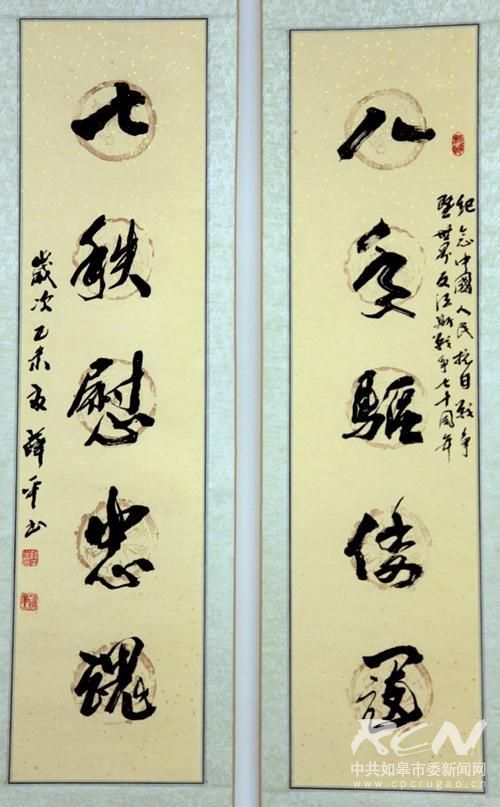 八年驅倭寇
紀念中國人民抗日戰争
暨世界反法斯戰争七十周年
七秩慰忠魂
歲次乙未夏薛平书
RCN
中共如皋市委新闻网
www.cpcrugao.cn